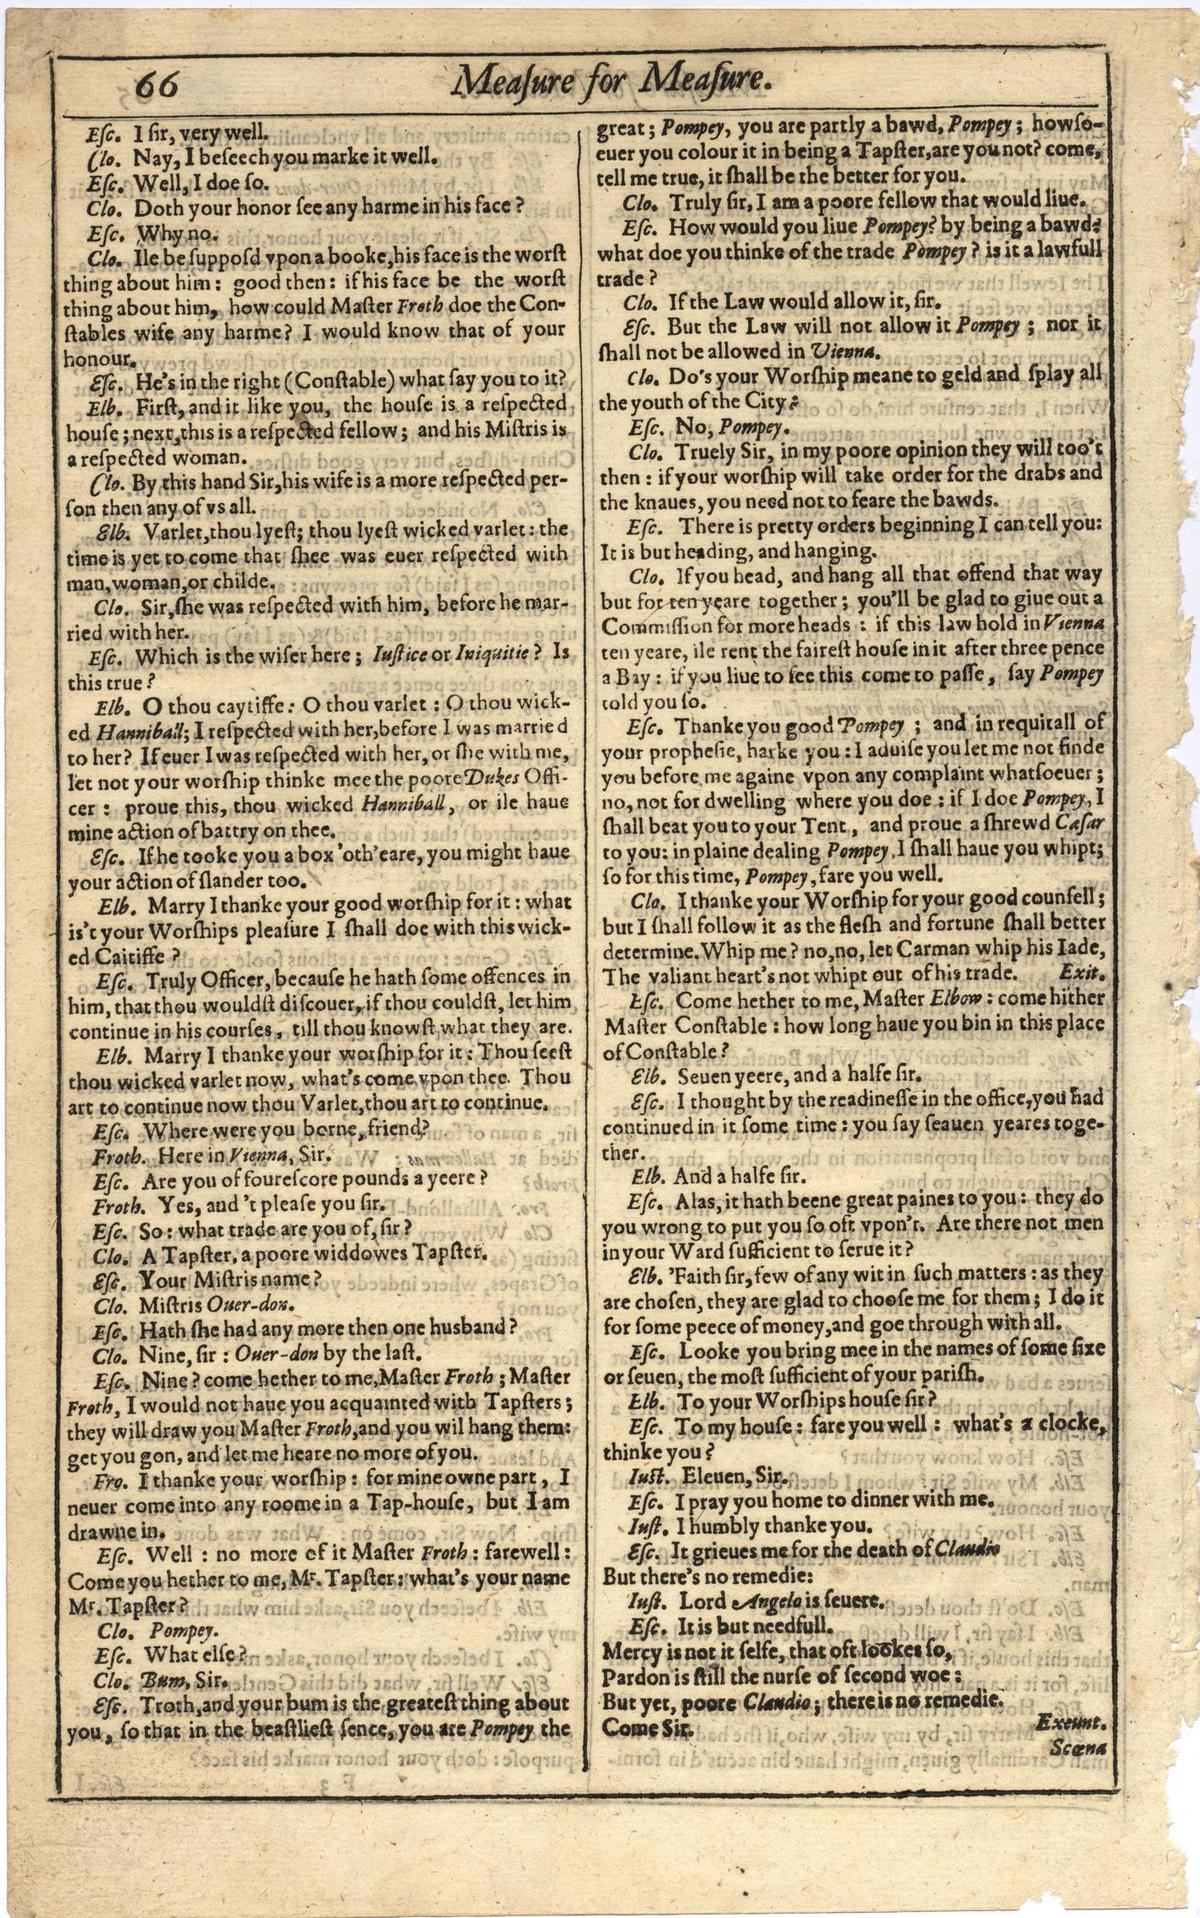 66
Meaſure for Meaſure.
Eſc. I ſir, very well.
Clo. Nay, I beſeech you marke it well.
Eſc. Well, I doe ſo.
Clo. Doth your honor ſee any harme in his face?
Eſc. Why no.
Clo. Ile be ſuppoſd vpon a booke, his face is the worſt
thing about him: good then: if his face be the worſt
thing about him, how could Maſter Froth doe the Con-
ſtables wife any harme? I would know that of your
honour.
Eſc. He's in the right (Conſtable) what ſay you to it?
Elb. Firſt, and it like you, the houſe is a reſpected
houſe; next, this is a reſpected fellow; and his Miſtris is
a reſpected woman.
Clo. By this hand Sir, his wife is a more reſpected per-
ſon then any of vs all.
Elb. Varlet, thou lyeſt; thou lyeſt wicked varlet: the
time is yet to come that ſhee was euer reſpected with
man, woman, or childe.
Clo. Sir, ſhe was reſpected with him, before he mar-
ried with her.
Eſc. Which is the wiſer here; Iuſtice or Iniquitie? Is
this true?
Elb. O thou caytiffe: O thou varlet: O thou wick-
ed Hanniball; I reſpected with her, before I was married
to her? If euer I was reſpected with her, or ſhe with me,
let not your worſhip thinke mee the poore Dukes Offi-
cer: proue this, thou wicked Hanniball, or ile haue
mine action of battry on thee.
Eſc. If he tooke you a box 'oth'eare, you might haue
your action of ſlander too.
Elb. Marry I thanke your good worſhip for it: what
is't your Worſhips pleaſure I ſhall doe with this wick-
ed Caitiffe?
Eſc. Truly Officer, becauſe he hath ſome offences in
him, that thou wouldſt diſcouer, if thou couldſt, let him
continue in his courſes, till thou knowſt what they are.
Elb. Marry I thanke your worſhip for it: Thou ſeeſt
thou wicked varlet now, what's come vpon thee. Thou
art to continue now thou Varlet, thou art to continue.
Eſc. Where were you borne, friend?
Froth. Here in Vienna, Sir.
Eſc. Are you of foureſcore pounds a yeere?
Froth. Yes, and 't pleaſe you ſir.
Eſc. So: what trade are you of, ſir?
Clo. A Tapſter, a poore widdowes Tapſter.
Eſc. Your Miſtris name?
Clo. Miſtris Ouer-don.
Eſc. Hath ſhe had any more then one husband?
Clo. Nine, ſir: Ouer-don by the laſt.
Eſc. Nine? come hether to me, Maſter Froth; Maſter
Froth, I would not haue you acquainted with Tapſters;
they will draw you Maſter Froth, and you wil hang them:
get you gon, and let me heare no more of you.
Fro. I thanke your worſhip: for mine owne part, I
neuer come into any roome in a Tap-houſe, but I am
drawne in.
Eſc. Well: no more of it Maſter Froth: farewell:
Come you hether to me, Mr. Tapſter: what's your name
Mr. Tapſter?
Clo. Pompey.
Eſc. What elſe?
Clo. Bum, Sir.
Eſc. Troth, and your bum is the greateſt thing about
you, ſo that in the beaſtlieſt ſence, you are Pompey the
great; Pompey, you are partly a bawd, Pompey; howſo-
euer you colour it in being a Tapſter, are you not? come,
tell me true, it ſhall be the better for you.
Clo. Truly ſir, I am a poore fellow that would liue.
Eſc. How would you liue Pompey? by being a bawd?
what doe you thinke of the trade Pompey? is it a lawfull
trade?
Clo. If the Law would allow it, ſir.
Eſc. But the Law will not allow it Pompey; nor it
ſhall not be allowed in Vienna.
Clo. Do's your Worſhip meane to geld and ſplay all
the youth of the City?
Eſc. No, Pompey.
Clo. Truely Sir, in my poore opinion they will too't
then: if your worſhip will take order for the drabs and
the knaues, you need not to feare the bawds.
Eſc. There is pretty orders beginning I can tell you:
It is but heading, and hanging.
Clo. If you head, and hang all that offend that way
but for ten yeare together; you'll be glad to giue out a
Commiſſion for more heads: if this law hold in Vienna
ten yeare, ile rent the faireſt houſe in it after three pence
a Bay: if you liue to ſee this come to paſſe, ſay Pompey
told you ſo.
Eſc. Thanke you good Pompey; and in requitall of
your propheſie, harke you: I aduiſe you let me not finde
you before me againe vpon any complaint whatſoeuer;
no, not for dwelling where you doe: if I doe Pompey, I
ſhall beat you to your Tent, and proue a ſhrewd Cæſar
to you: in plaine dealing Pompey, I ſhall haue you whipt;
ſo for this time, Pompey, fare you well.
Clo. I thanke your Worſhip for your good counſell;
but I ſhall follow it as the fleſh and fortune ſhall better
determine. Whip me? no, no, let Carman whip his Iade,
The valiant heart's not whipt out of his trade. Exit.
Eſc. Come hether to me, Maſter Elbow: come hither
Maſter Conſtable: how long haue you bin in this place
of Conſtable?
Elb. Seuen yeere, and a halfe ſir.
Eſc. I thought by the readineſſe in the office, you had
continued in it ſome time: you ſay ſeauen yeares toge-
ther.
Elb. And a halfe ſir.
Eſc. Alas, it hath beene great paines to you: they do
you wrong to put you ſo oft vpon't. Are there not men
in your Ward ſufficient to ſerue it?
Elb. 'Faith ſir, few of any wit in ſuch matters: as they
are choſen, they are glad to chooſe me for them; I do it
for ſome peece of money, and goe through with all.
Eſc. Looke you bring mee in the names of ſome ſixe
or ſeuen, the moſt ſufficient of your pariſh.
Elb. To your Worſhips houſe ſir?
Eſc. To my houſe: fare you well: what's a clocke,
thinke you?
Iuſt. Eleuen, Sir.
Eſc. I pray you home to dinner with me.
Iuſt. I humbly thanke you.
Eſc. It grieues me for the death of Claudio
But there's no remedie:
Iuſt. Lord Angelo is ſeuere.
Eſc. It is but needfull.
Mercy is not it ſelfe, that oft lookes ſo,
Pardon is ſtill the nurſe of ſecond woe:
But yet, poore Claudio; there is no remedie.
Come Sir. Exeunt.
Scœna